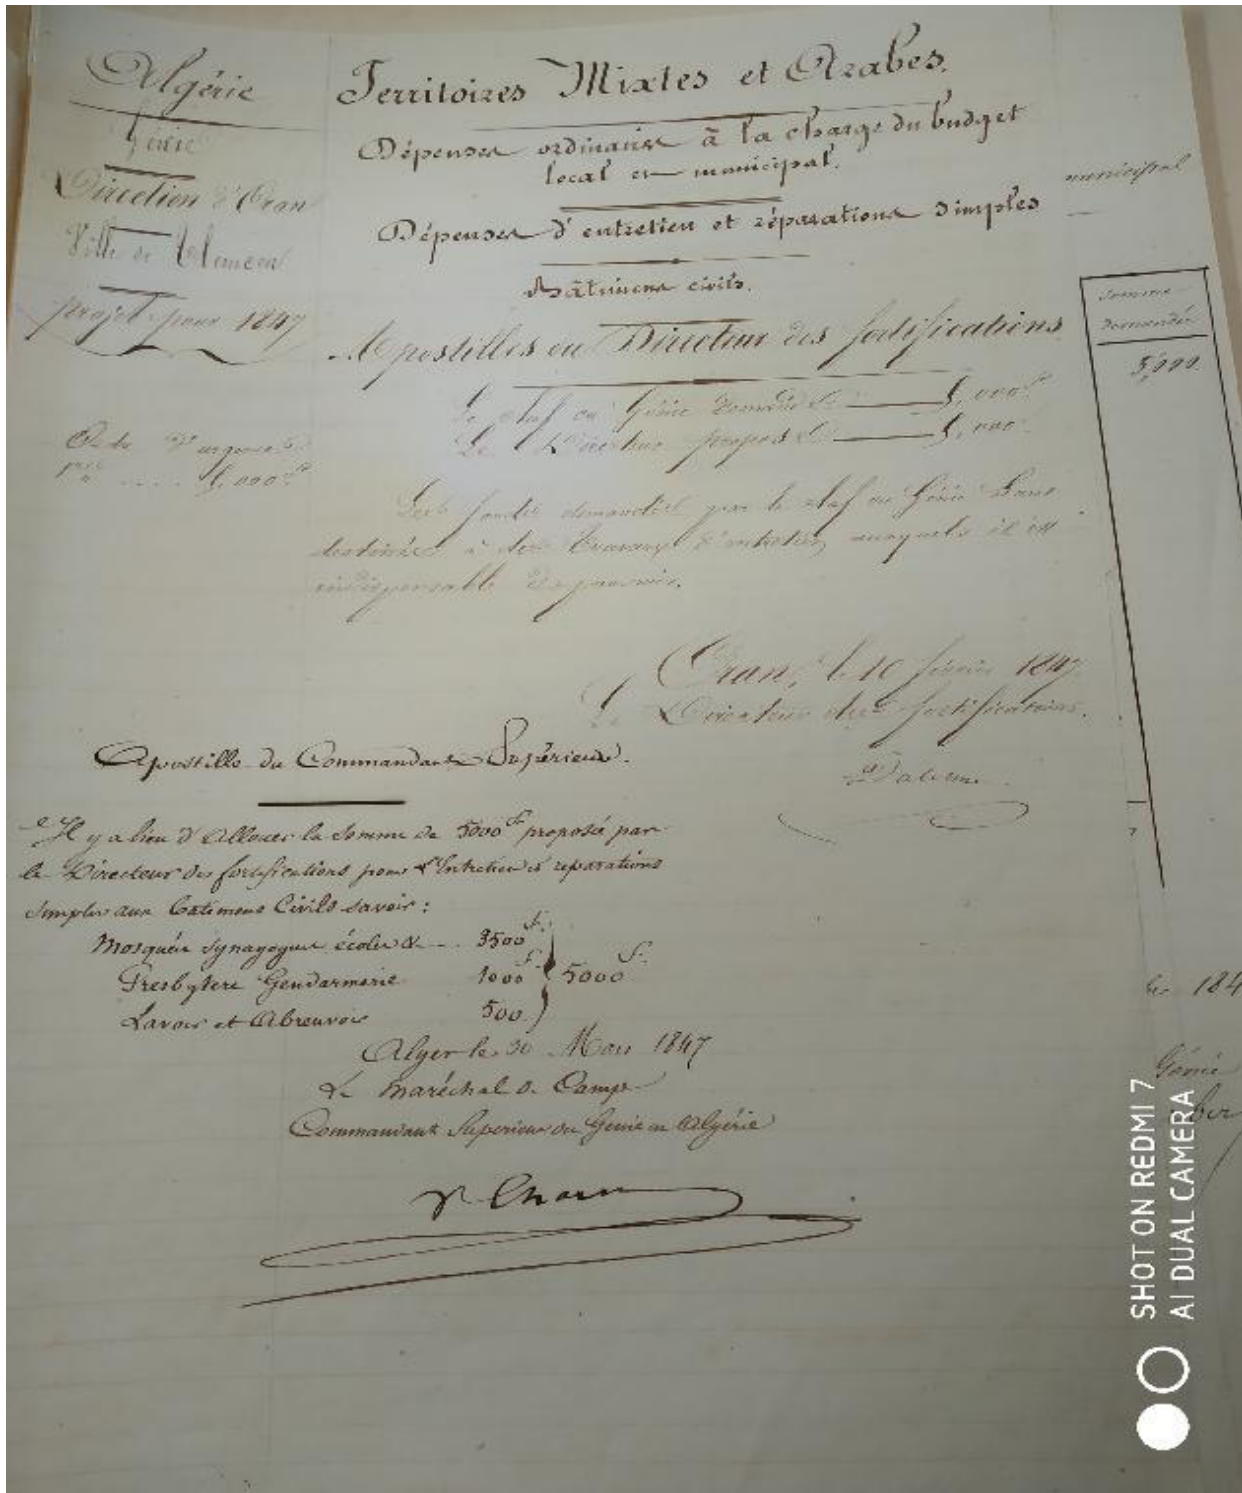 Algérie
Génie
Direction d'Oran
Ville de Tlemcen
Projet pour 1847
Territoires Mixtes et Arabes.
Dépenses ordinaires à la charge du budget
local et municipal.
Dépenses d'entretien et réparations simples
Bâtimens civils.
Apostilles du Directeur des fortifications
Le chef du Génie demande 5,000 f
Le Directeur propose 5,000
Ordre d'urgence
5,000 f
Les fonds demandés par le chef du Génie sont
destinés à des travaux d'entretien auxquels il est
indispensable de pourvoir.
Oran, le 10 février 1847
Le Directeur des fortifications.
Apostille du Commandant Supérieur.
Il y a lieu d'Allouer la Somme de 5000 f proposée par
le Directeur des fortifications pour l'Entretien et réparations
simples aux batimens Civils savoir :
Mosquées synagogues écoles & 3500 f.
Presbytere Gendarmerie 1000 f. 5000 f.
Lavoir et Abreuvoir 500
Alger le 30 Mars 1847
Le Maréchal de Camp
Commandant Supérieur du Génie en Algérie
municipal
Somme
Demandée
5,000.
le 184
Génie
SHOT ON REDMI 7
AI DUAL CAMERA